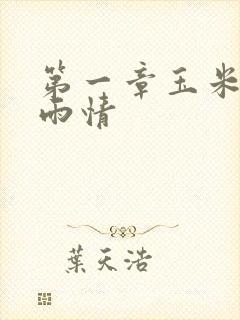 第一章玉米
雨情
葉天浩